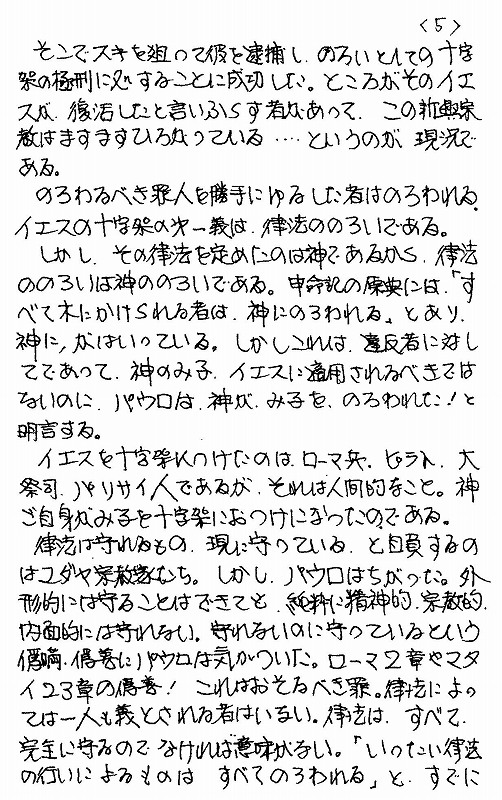 〈5〉
そこでスキを狙って彼を逮捕し、のろいとしての十字
架の極刑に処することに成功した。ところがそのイエ
スが、復活したと言いふらす者があって、この新興宗
教はますますひろがっている‥‥というのが、現況で
ある。
のろわるべき罪人を勝手にゆるした者はのろわれる。
イエスの十字架の第一義は、律法ののろいである。
しかし、その律法を定めたのは神であるから、律法
ののろいは神ののろいである。申命記の原典には、「す
べて木にかけられる者は、神にのろわれる」とあり、
神に、がはいっている。しかしこれは、違反者に対し
てであって、神のみ子、イエスに適用されるべきでは
ないのに、パウロは、神が、み子を、のろわれた!と
明言する。
イエスを十字架につけたのは、ローマ兵、ピラト、大
祭司、パリサイ人であるが、それは人間的なこと。神
ご自身がみ子を十字架におつけになったのである。
律法は守れるもの、現に守っている、と自負するの
はユダヤ宗教家たち。しかし、パウロはちがった。外
形的には守ることはできても、純粋に精神的、宗教的、
内面的には守れない。守れないのに守っているという
欺瞞、偽善にパウロは気がついた。ローマ2章やマタ
イ23章の偽善!これはおそるべき罪。律法によっ
ては一人も義とされる者はいない。律法は、すべて、
完全に守るのでなければ意味がない。「いったい律法
の行いによるものは、すべてのろわれる」と、すでに